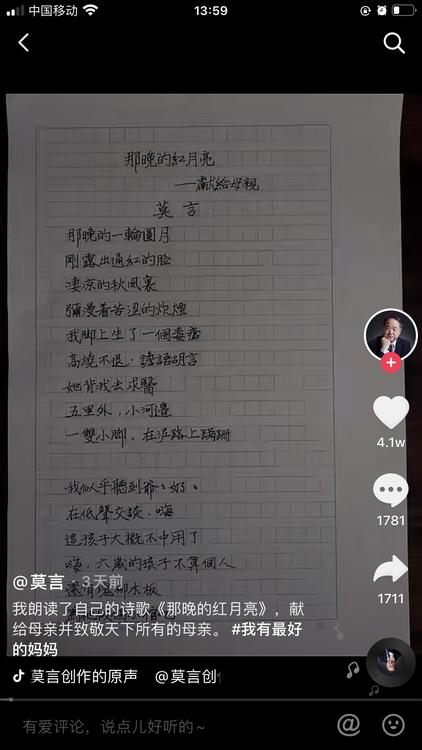 中国移动
13:59
那晚的紅月亮
——獻給母親
莫言
那晚的一輪圓月
剛露出通紅的脸
淒凉的秋風裏
彌漫着苦澀的炊煙
我脚上生了一個毒瘡
高燒不退，譫語胡言
她背我去求醫
五里外，小河邊
一雙小脚，在泥路上蹒跚
我似乎聽到爺爺奶奶
在低聲交談，嗨
這孩子大概不中用了
嗨，六歲的孩子不算個人
還有塊柳木板
4.1w
1781
1711
@莫言 · 3天前
我朗读了自己的诗歌《那晚的红月亮》，献
给母亲并致敬天下所有的母亲。 #我有最好
的妈妈
莫言创作的原声 @莫言创
有爱评论，说点儿好听的~